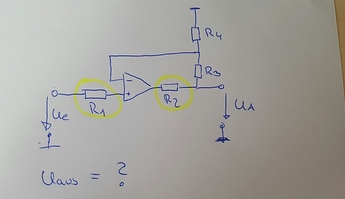 R4
R3
−
+
R1
R2
Ue
UA
Uaus = ?